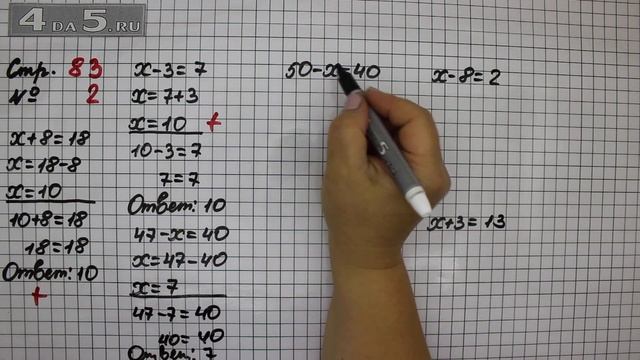 4DA5.RU
Стр. 83
№ 2
x+8=18
x=18-8
x=10
10+8=18
18=18
Ответ: 10
+
x-3=7
x=7+3
x=10 +
10-3=7
7=7
Ответ: 10
47-x=40
x=47-40
x=7
47-7=40
40=40
Ответ: 7
50-x=40
x-8=2
x+3=13